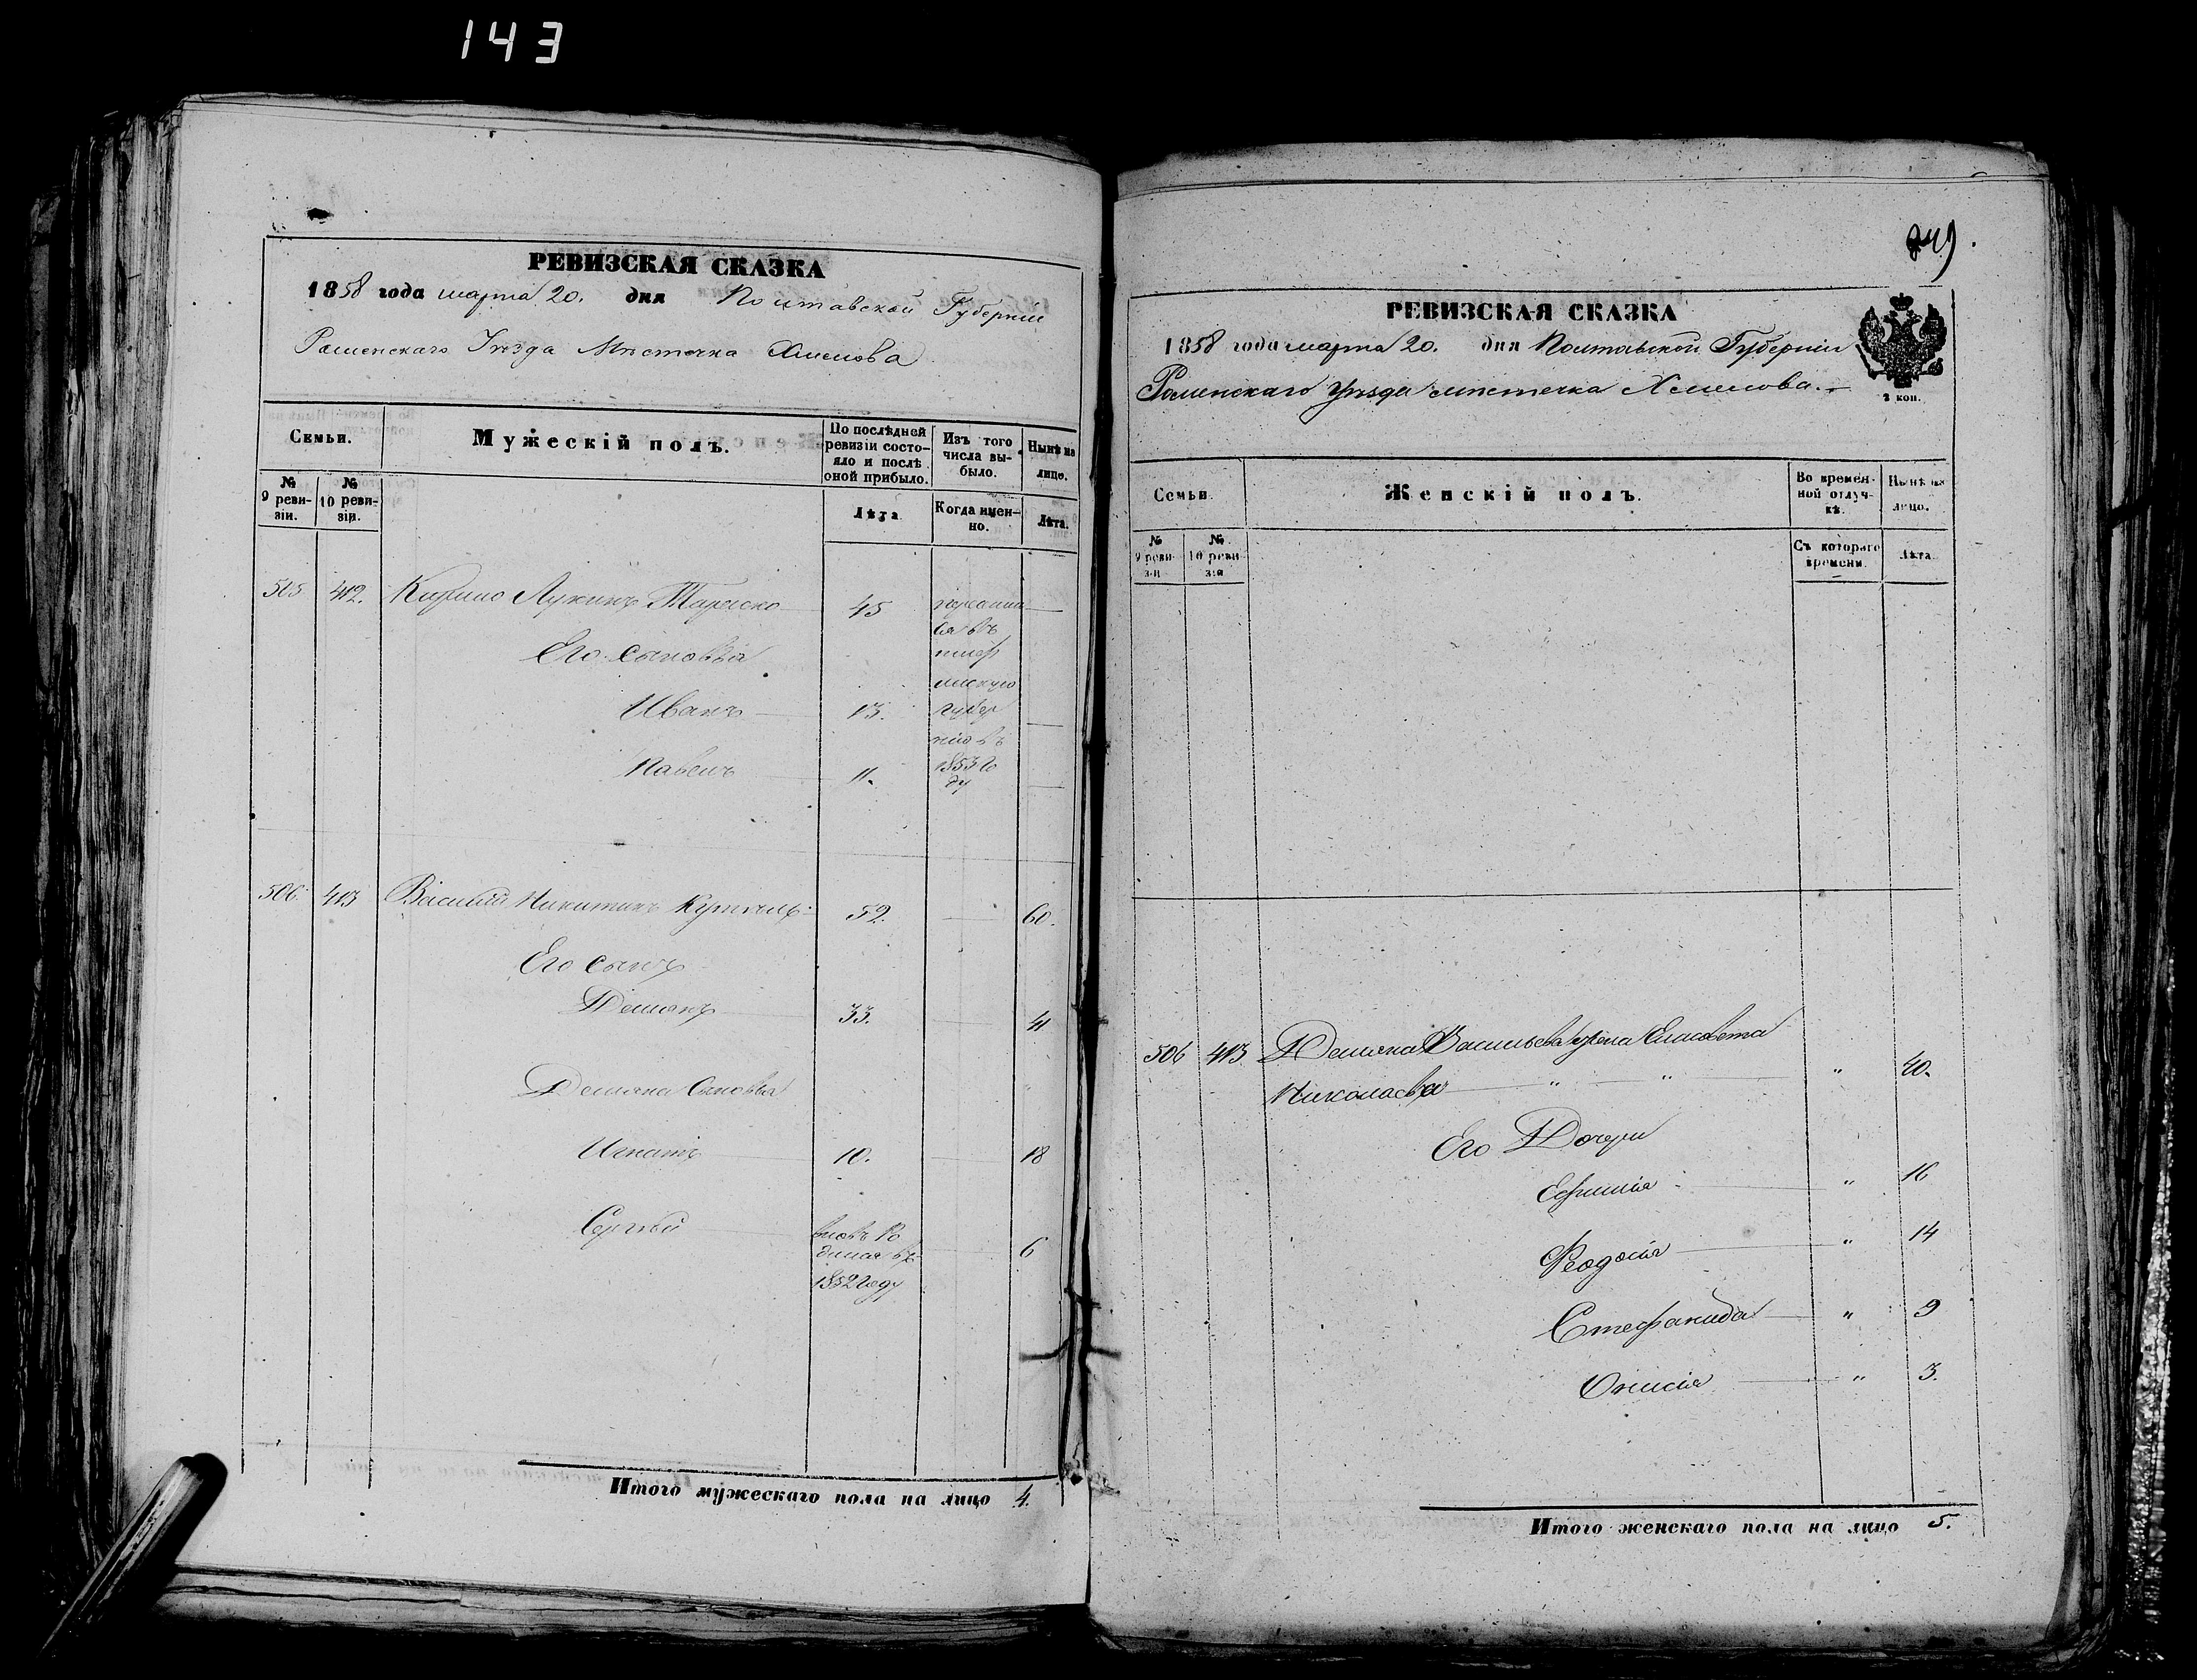 143
РЕВИЗСКАЯ СКАЗКА
1858 года марта 20. дня Полтавской Губерніи
Роменскаго Уѣзда Мѣстечка Хмелова
Семьи.
Мужескій полъ.
По послѣдней ревизіи состо-
яло и послѣ
оной прибыло.
Изъ того
числа вы-
было.
Нынѣ на
лицо.
№
9 реви-
зіи.
№
10 реви-
зіи.
Лѣта
Когда имен-
но.
Лѣта.
505 412. Лукинъ 45
Его сыновья
Иванъ 13.
Павелъ 11.
губер
нію въ
1853 го
ду
506. 413 Василій Никитинъ 52. 60.
Его сынъ
Демянъ 33. 41
Демяна Сыновья
Игнатъ 10. 18
Сергѣй 6
вновь ро
дился въ
1852 году
Итого мужескаго пола на лицо 4.
249.
РЕВИЗСКАЯ СКАЗКА
1858 года марта 20. дня Полтавской Губерніи
Роменскаго Уѣзда мѣстечка Хмелова.
2 коп.
Семьи.
Женскій полъ.
Во времен-
ной отлуч-
кѣ.
Нынѣ на
лицо.
№
9 реви-
зіи
№
10 реви-
зіи
Съ котораго
времени.
Лѣта
506 413 Демяна Васильева жена Елисавета
Николаева " " " 40.
Его Дочери
Ефимія " 16
Феодосія " 14
Стефанида " 9
Онисія " 3.
Итого женскаго пола на лицо 5.